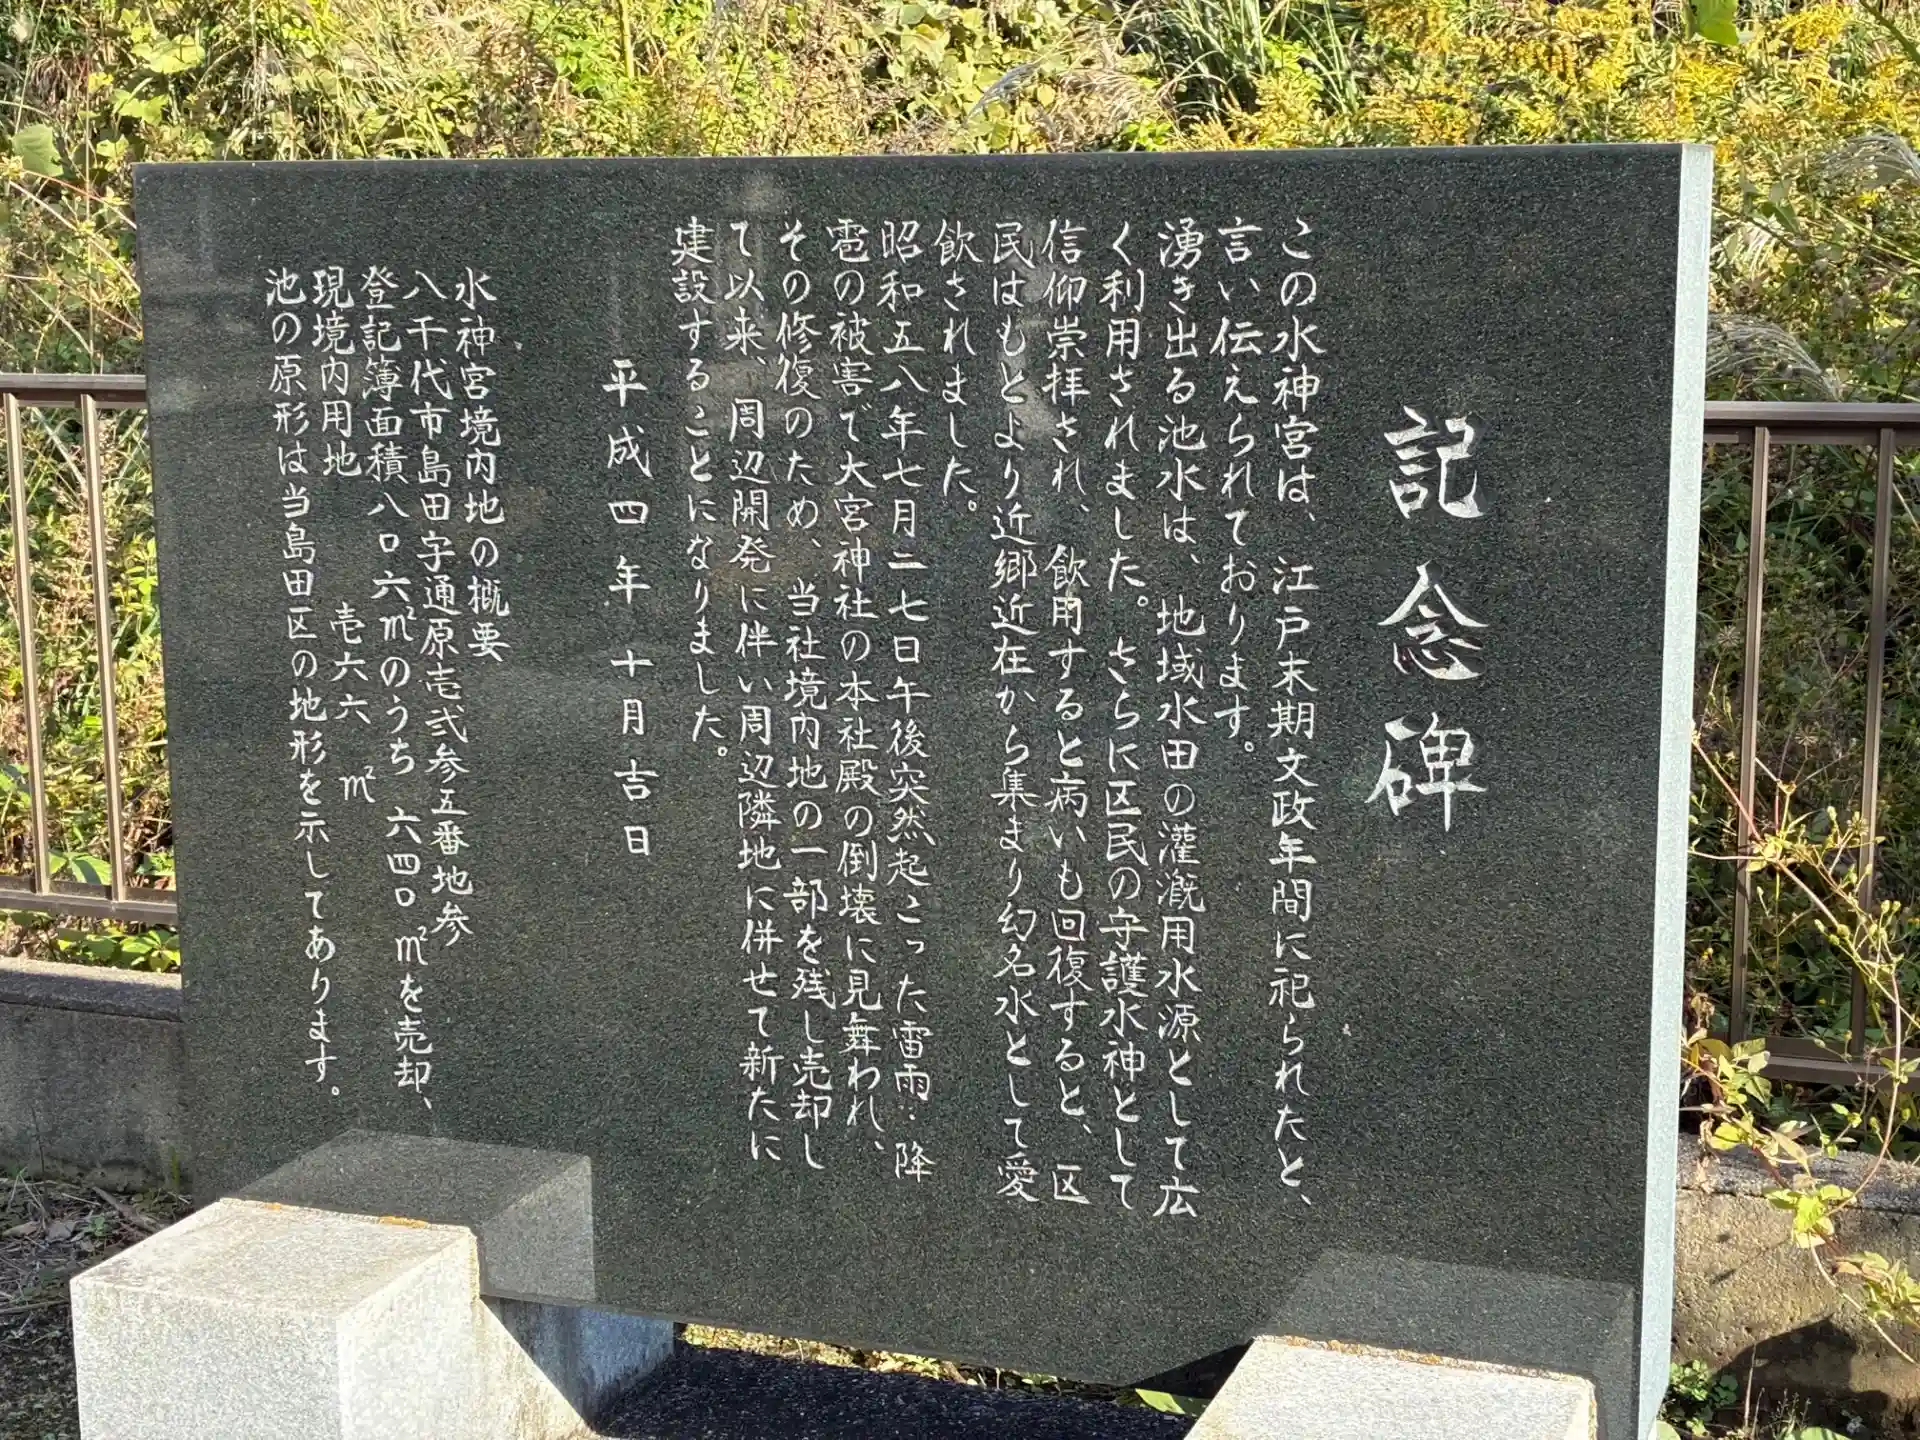 記念碑
この水神宮は、江戸末期文政年間に祀られたと、
言い伝えられております。
湧き出る池水は、地域水田の灌漑用水源として広
く利用されました。さらに区民の守護水神として
信仰崇拝され、飲用すると病いも回復すると、区
民はもとより近郷近在から集まり幻名水として愛
飲されました。
昭和五八年七月二七日午後突然起こった雷雨・降
雹の被害で大宮神社の本社殿の倒壊に見舞われ、
その修復のため、当社境内地の一部を残し売却し
て以来、周辺開発に伴い周辺隣地に併せて新たに
建設することになりました。
平成四年十月吉日
水神宮境内地の概要
八千代市島田字通原壱弐参五番地参
登記簿面積八〇六㎡のうち 六四〇㎡を売却、
現境内用地 壱六六 ㎡
池の原形は当島田区の地形を示してあります。